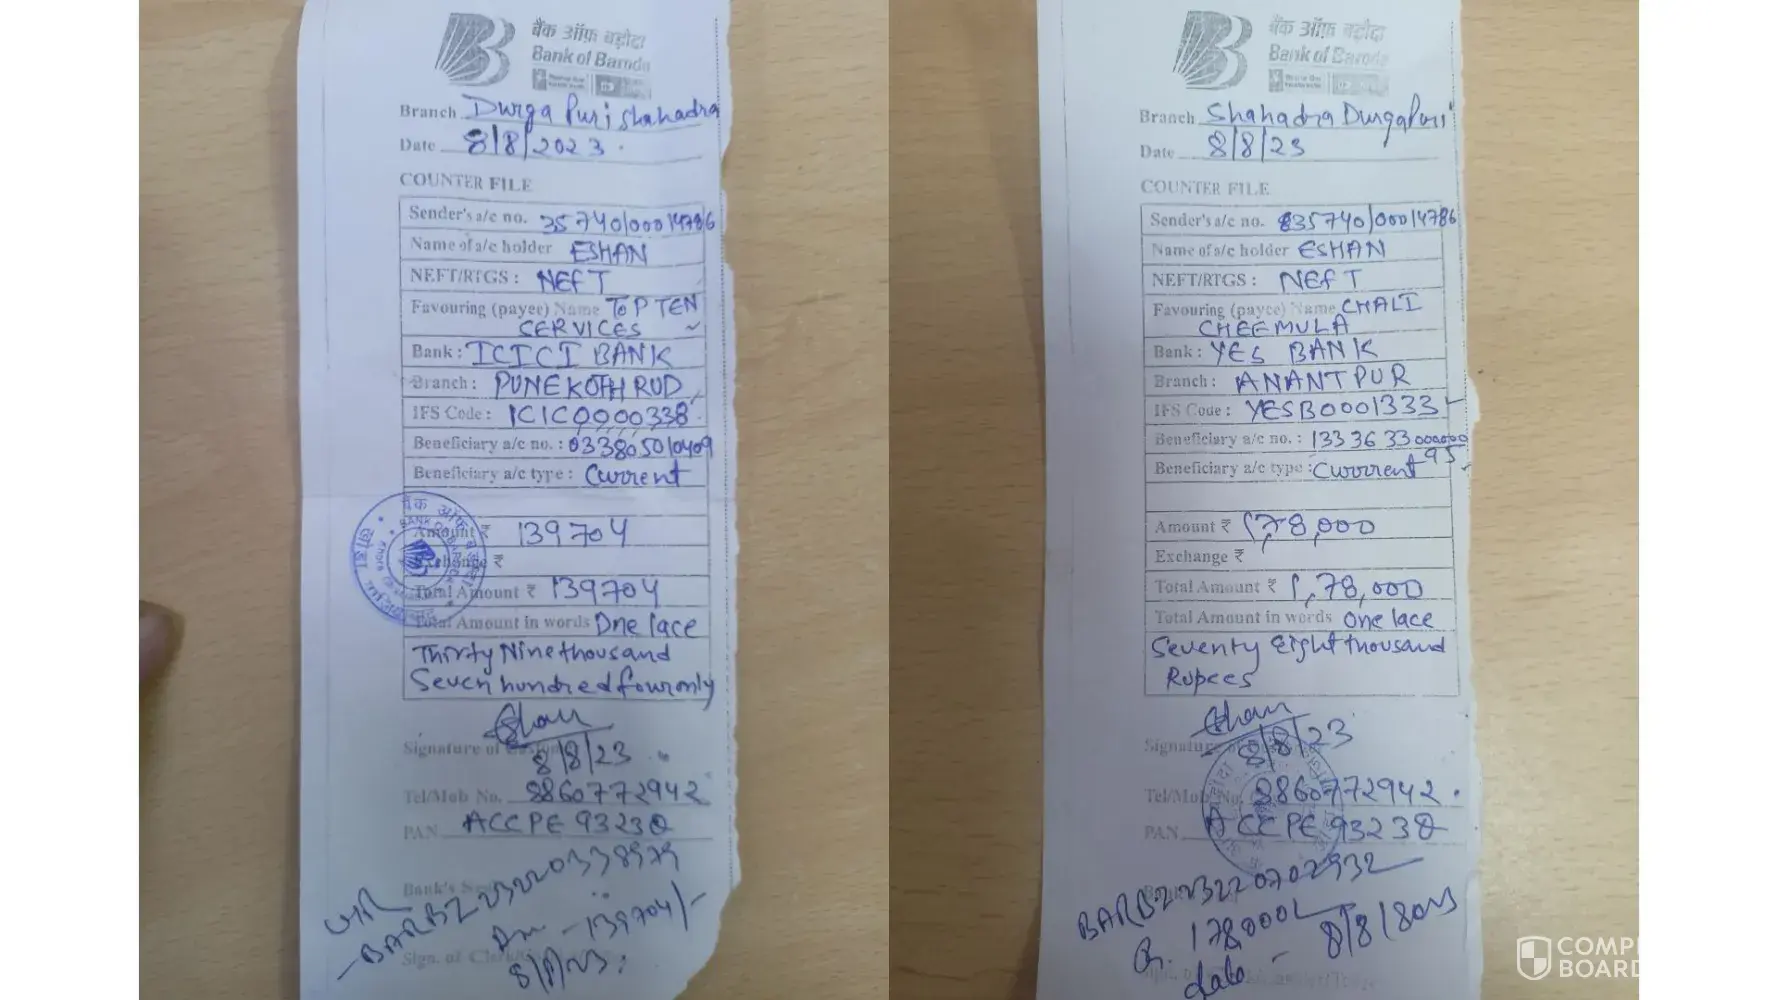 बैंक ऑफ़ बड़ौदा
Bank of Baroda
Branch Durga Puri Shahadra
Date 8/8/2023.
COUNTER FILE
Sender's a/c no. 35740100014786
Name of a/c holder ESHAN
NEFT/RTGS : NEFT
Favouring (payee) Name TOP TEN
SERVICES
Bank : ICICI BANK
Branch : PUNE KOTHRUD
IFS Code : ICIC0000338
Beneficiary a/c no. : 033805010409
Beneficiary a/c type : Current
Amount ₹ 139704
Exchange ₹
Total Amount ₹ 139704
Total Amount in words One lace
Thirty Nine thousand
Seven hundred four only
Signature of
8/8/23
Tel/Mob No. 8860772942
PAN ACCPE9323Q
Bank's
139704/-
Sign. of
बैंक ऑफ़ बड़ौदा
Bank of Baroda
Branch Shahadra DurgaPuri
Date 8/8/23
COUNTER FILE
Sender's a/c no. 35740100014786
Name of a/c holder ESHAN
NEFT/RTGS : NEFT
Favouring (payee) Name CHALI
CHEEMULA
Bank : YES BANK
Branch : ANANTPUR
IFS Code : YESB0001333
Beneficiary a/c no. : 133363300000095
Beneficiary a/c type : Current
Amount ₹ 1,78,000
Exchange ₹
Total Amount ₹ 1,78,000
Total Amount in words one lace
Seventy Eight thousand
Rupees
Signature
8/8/23
Tel/Mob No. 8860772942.
PAN ACCPE9323Q
178000
date -
COMPL
BOARD